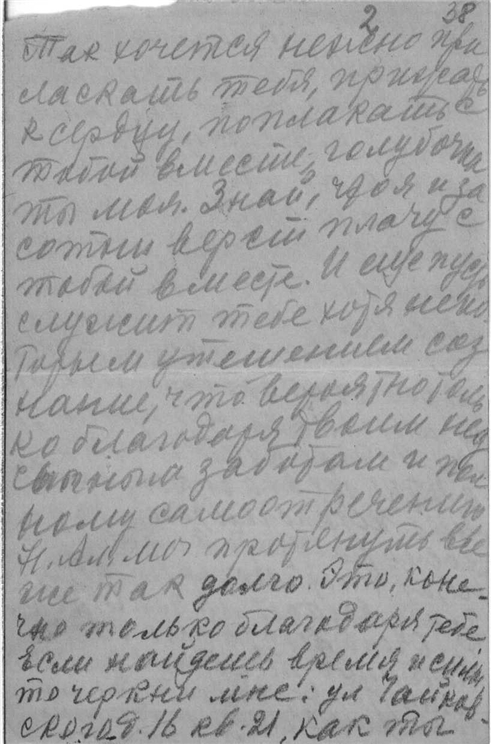 2 38
Так хочется нежно при
ласкать тебя, прижать
к сердцу, поплакать с
тобой вместе, голубочка
ты моя. Знай, что я и за
сотни верст плачу с
тобой вместе. И еще пусть
служит тебе хотя неко
торым утешением соз
нание, что вероятно толь
ко благодаря твоим неу
сыпным заботам и пол
ному самоотречению
Н. Ал. мог протянуть все
же так долго. Это, коне-
чно только благодаря тебе
Если найдешь время и силы,
то черкни мне: ул Чайков-
ского д. 16 кв. 21, как ты